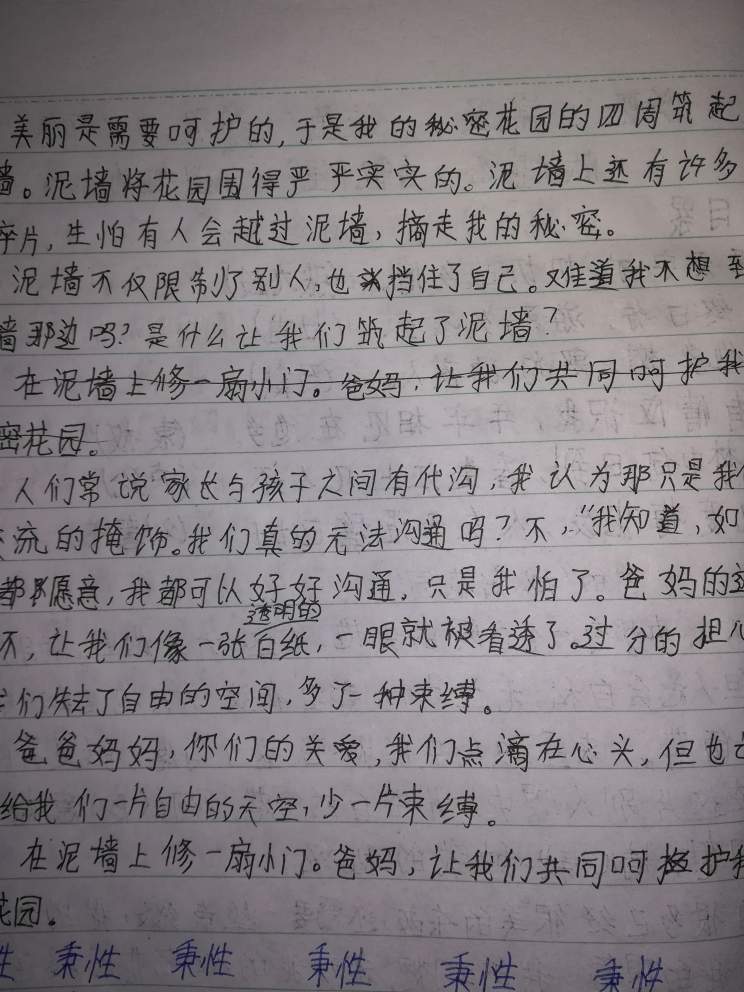 美丽是需要呵护的,于是我的秘密花园的四周筑起
墙。泥墙将花园围得严严实实的。泥墙上还有许多
碎片,生怕有人会越过泥墙,摘走我的秘密。
泥墙不仅限制了别人,也挡住了自己。难道我不想到
墙那边吗?是什么让我们筑起了泥墙?
在泥墙上修一扇小门。爸妈,让我们共同呵护我
密花园。
人们常说家长与孩子之间有代沟,我认为那只是我们
流的掩饰。我们真的无法沟通吗?不,“我知道,如
都愿意,我都可以好好沟通,只是我怕了。爸妈的
透明的
不,让我们像一张白纸,一眼就被看透了。过分的担心
们失去了自由的空间,多了一种束缚。
爸爸妈妈,你们的关爱,我们点滴在心头,但也
给我们一片自由的天空,少一片束缚。
在泥墙上修一扇小门。爸妈,让我们共同呵护我
花园。
性 秉性 秉性 秉性 秉性 秉性